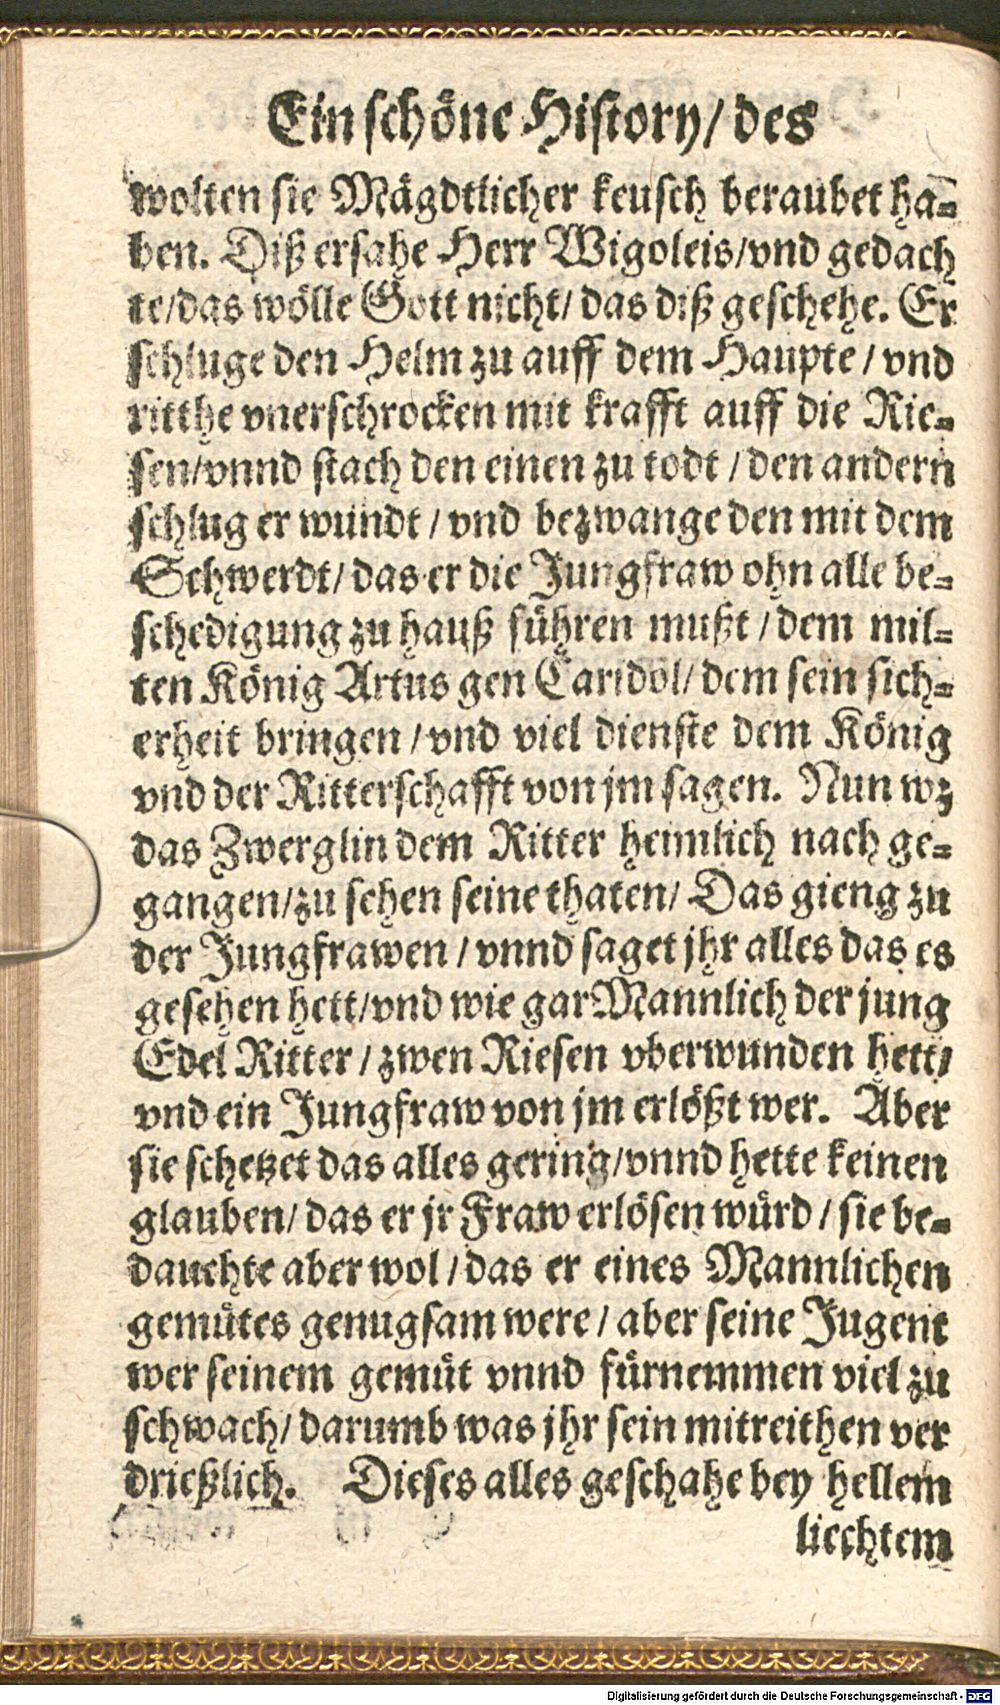 Ein schöne History/ des
wolten sie Mägdtlicher keusch beraubet ha-
ben. Diß ersahe Herr Wigoleis/vnd gedach
te/das wölle Gott nicht/ das diß geschehe. Er
schluge den Helm zu auff dem Haupte / vnd
ritthe vnerschrocken mit krafft auff die Rie-
sen/vnnd stach den einen zu todt / den andern
schlug er wundt / vnd bezwange den mit dem
Schwerdt/ das er die Jungfraw ohn alle be-
schedigung zu hauß führen mußt / dem mil-
ten König Artus gen Caridol/ dem sein sich-
erheit bringen / vnd viel dienste dem König
vnd der Ritterschafft von jm sagen. Nun wz
das Zwerglin dem Ritter heimlich nach ge-
gangen/zu sehen seine thaten/ Das gieng zu
der Jungfrawen / vnnd saget jhr alles das es
gesehen hett/vnd wie gar Mannlich der jung
Edel Ritter / zwen Riesen vberwunden hett/
vnd ein Jungfraw von jm erlößt wer. Aber
sie schetzet das alles gering/vnnd hette keinen
glauben/ das er jr Fraw erlösen würd / sie be-
dauchte aber wol / das er eines Mannlichen
gemütes genugsam were / aber seine Jugent
wer seinem gemüt vnnd fürnemmen viel zu
schwach/ darumb was jhr sein mitreithen ver
drießlich. Dieses alles geschahe bey hellem
liechtem
Digitalisierung gefördert durch die Deutsche Forschungsgemeinschaft - DFG